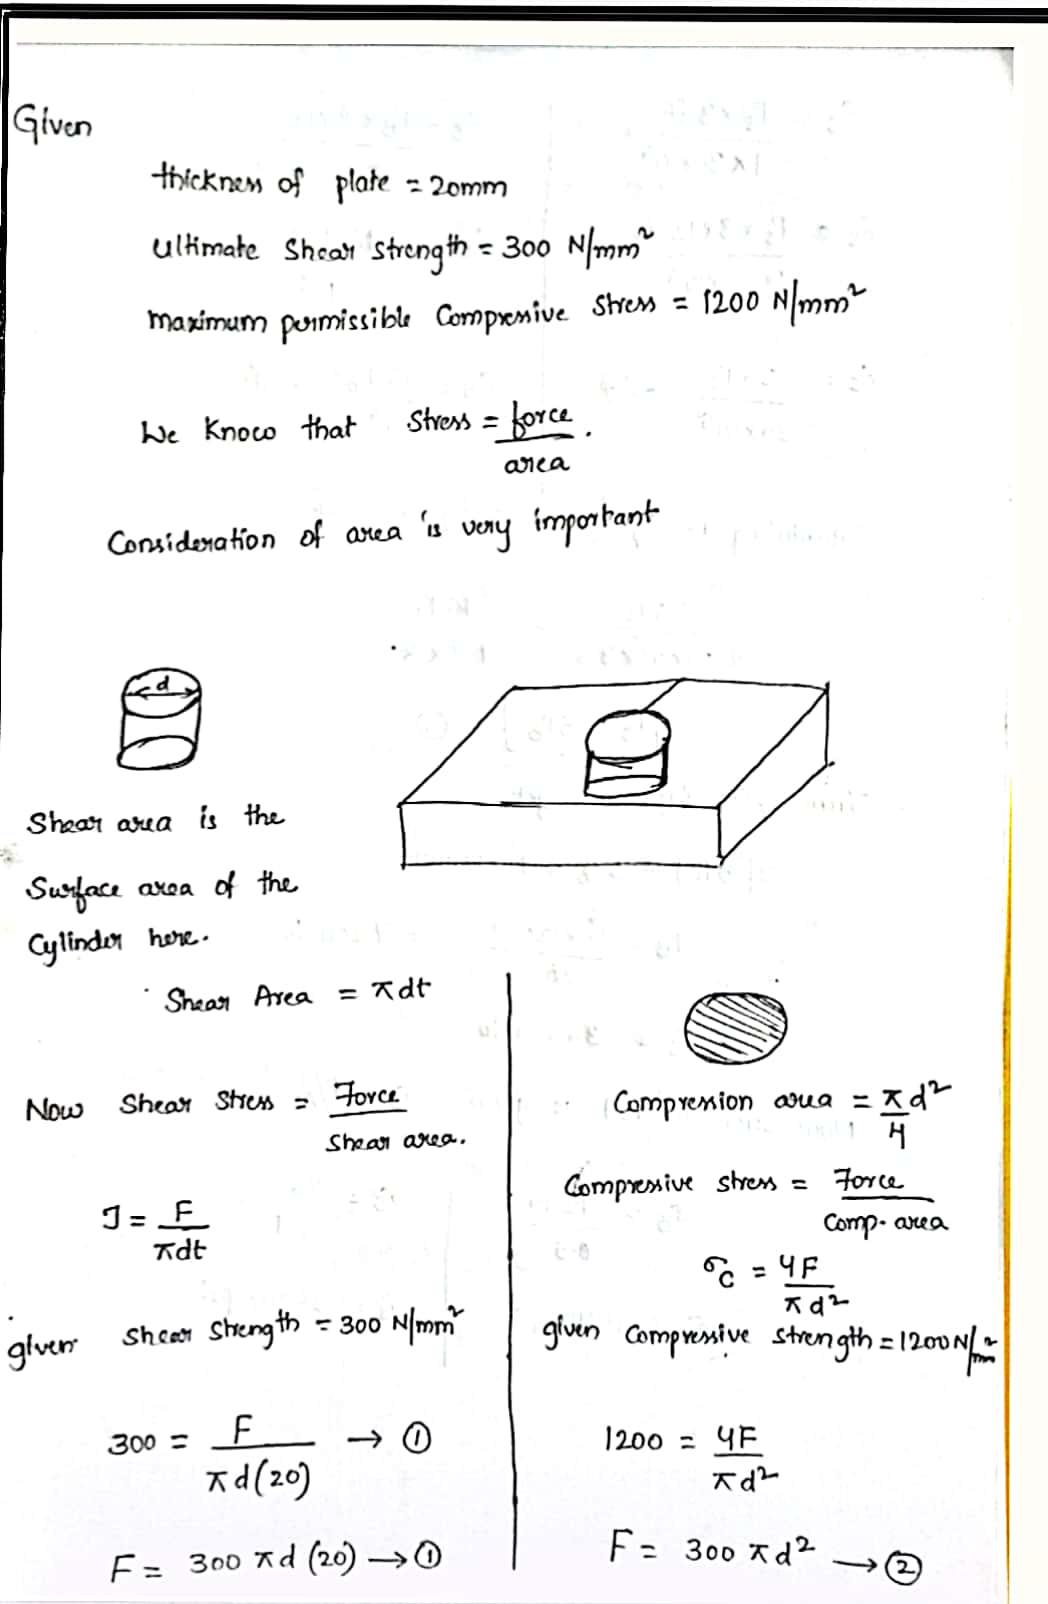 Given
thickness of plate = 20mm
Ultimate Shear Strength = 300 N/mm²
Maximum permissible Compressive Stress = 1200 N/mm²
We Know that Stress = force
area
Consideration of area is very important
d
Shear area is the
Surface area of the
Cylinder here.
Shear Area = πdt
Now Shear Stress = Force
Shear area.
τ = F
πdt
given Shear Strength = 300 N/mm²
300 = F → ①
πd(20)
F = 300 πd (20) → ①
Compression area = πd²
4
Compressive stress = Force
Comp. area
σc = 4F
πd²
given Compressive strength = 1200 N/mm²
1200 = 4F
πd²
F = 300 πd² → ②